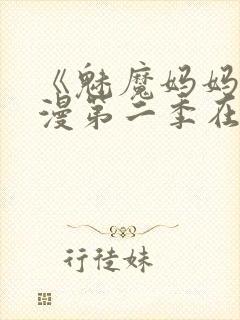 《魅魔妈妈
漫第二季在
行徒妹